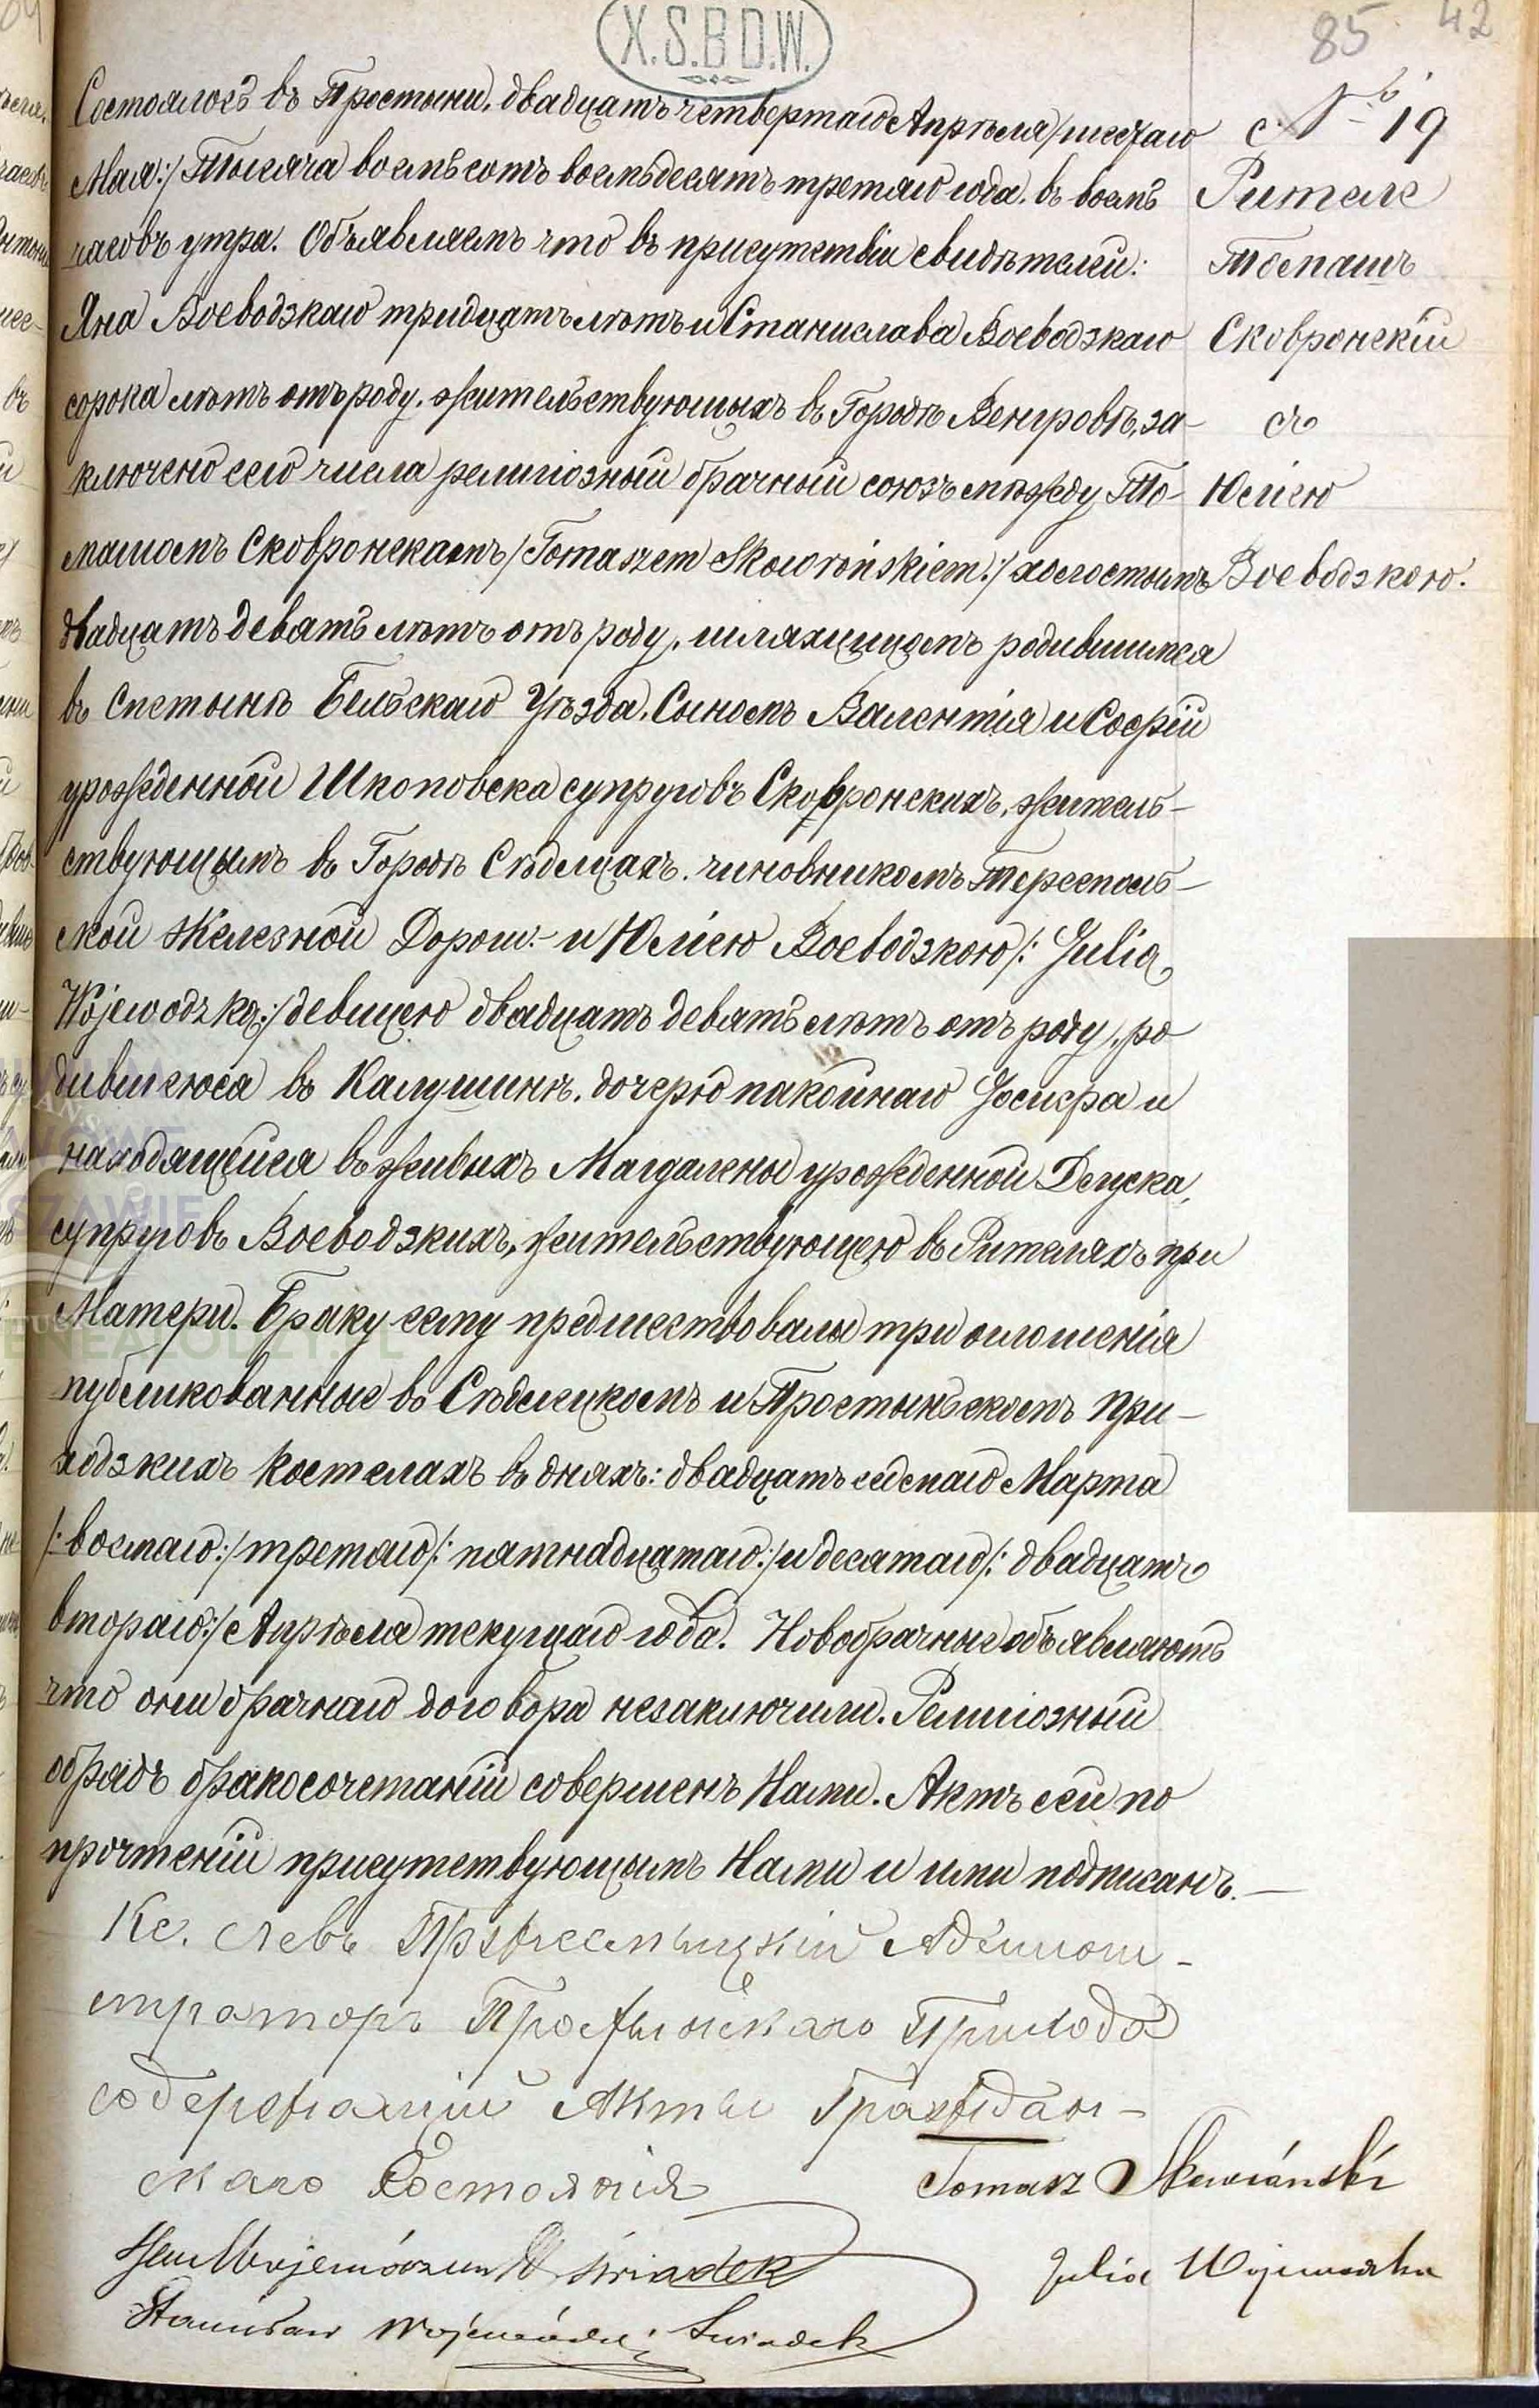 X.S.B.D.W.
85 42
№ 19
Рителе
Томашъ
Сковронскій
съ
Юліею
Воеводзкою.
Состоялось въ Простыни, двадцать четвертаго Апрѣля /шестаго
Мая:/ Тысяча восемьсотъ восемьдесятъ третяго года, въ восемь
часовъ утра. Объявляемъ что въ присутствіи свидѣтелей:
Яна Воеводзкаго тридцать лѣтъ и Станислава Воеводзкаго
сорока лѣтъ отъ роду, жительствующыхъ въ Городѣ Венгровѣ, за-
ключено сего числа религіозный брачный союзъ мѣжду То-
машомъ Сковронскамъ /Tomaszem Skowrońskiem:/ холостымъ
двадцать девять лѣтъ отъ роду, шляхцицомъ родившимся
въ Сметынѣ Бельскаго Уѣзда, Сыномъ Валентія и Софіи
урожденной Шкоповска супруговъ Сковронскихъ, житель-
ствующымъ въ Городѣ Сѣдлцахъ, чиновникомъ Тереспол-
ской Железной Дороги – и Юліею Воеводзкою /: Julią
Wojewodzką:/ девицею двадцать девять лѣтъ отъ роду, ро
дившеюся въ Калушинѣ, дочерю пакойнаго Іосифа и
находящейся въ живыхъ Магдалены урожденной Делуска,
супруговъ Воеводзкихъ, жительствующею въ Рителяхъ при
Матери. Браку сему предшествовалы три оглошенія
публикованные въ Сѣдлецкомъ и Простыньскомъ При-
ходзкихъ Костелахъ въ дняхъ: двадцать седмаго Марта
/: восмаго:/ третяго /: пятнадцатаго:/ и десятаго /: двадцать
втораго:/ Апрѣля текущаго года. Новобрачные объявляютъ
что они брачнаго договора незаключили. Религіозный
обрядъ бракосочетаніи совершенъ Нами. Актъ сей по
прочтеніи присутствующымъ Нами и ими подписанъ.—
Кс. Левъ Пржесмыцкій Админи-
страторъ Простынскаго Прихода
содержащій Акты Граждан-
скаго Состоянія
Tomasz Skowroński
Jan Wojewódzki świadek
Julia Wojewodzka
Stanisław Wojewódzki Swiadek